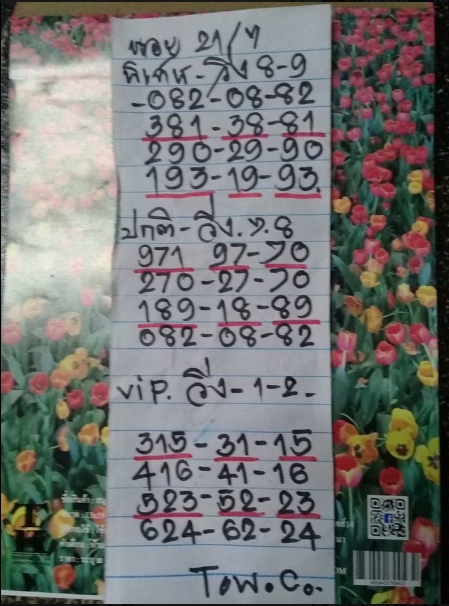 หฺอย 21/7
พิเศษ-วิ่ง 8-9
-082-08-82
381-38-81
290-29-90
193-19-93.
ปกติ-วิ่ง.7.8
971 97-70
270-27-70
189-18-89
082-08-82
vip. วิ่ง-1-2-
315-31-15
416-41-16
523-52-23
624-62-24
Tow.Co.